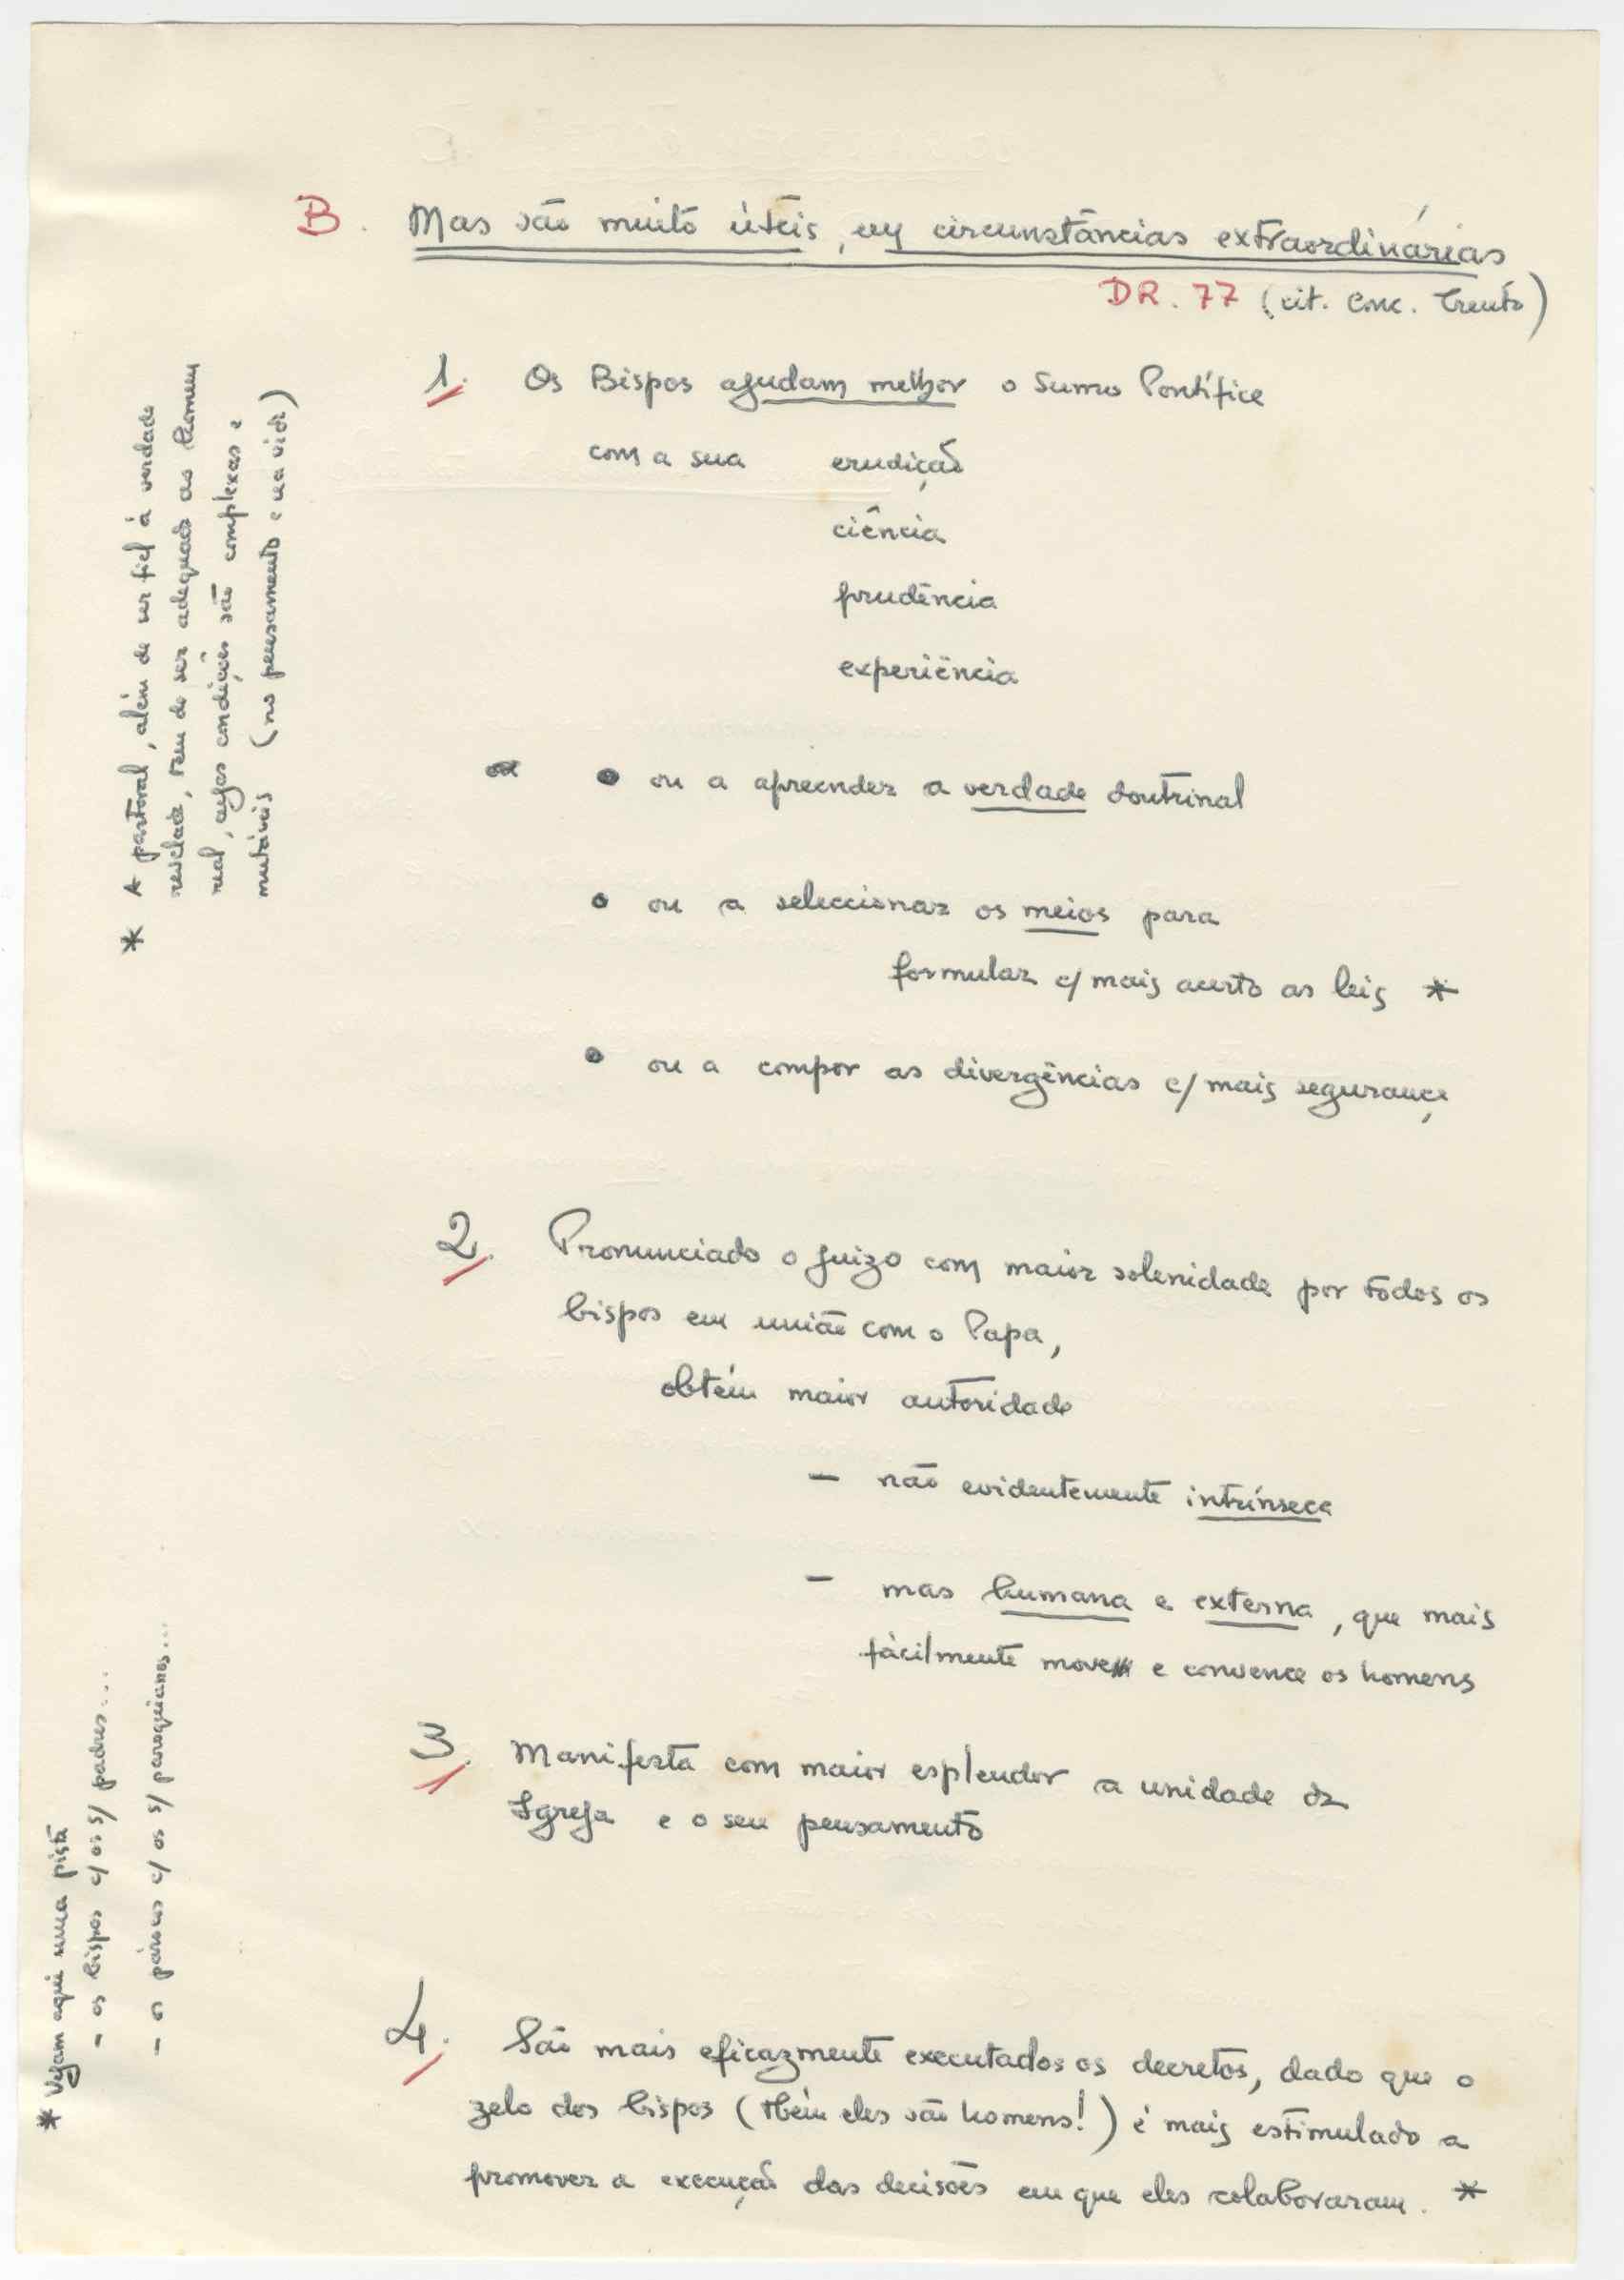 B. Mas são muito úteis, em circunstâncias extraordinárias
DR. 77 (cit. Conc. Trento)
1. Os Bispos ajudam melhor o Sumo Pontífice
com a sua erudição
ciência
prudência
experiência
• ou a apreender a verdade doutrinal
• ou a seleccionar os meios para
formular c/ mais acerto as leis *
• ou a compor as divergências c/ mais segurança
2. Pronunciado o juizo com maior solenidade por todos os
bispos em união com o Papa,
obtém maior autoridade
- não evidentemente intrínseca
- mas humana e externa, que mais
fàcilmente move e convence os homens
3. Manifesta com maior esplendor a unidade da
Igreja e o seu pensamento
4. São mais eficazmente executados os decretos, dado que o
zelo dos bispos (tbém eles são homens!) é mais estimulado a
promover a execução das decisões em que eles colaboraram. *
* A pastoral, além de ser fiel à verdade
revelada, tem de ser adequada ao homem
real, cujas condições são complexas e
mutáveis (no pensamento e na vida)
* Vejam aqui uma pista
- os bispos c/ os s/ padres...
- os párocos c/ os s/ paroquianos...